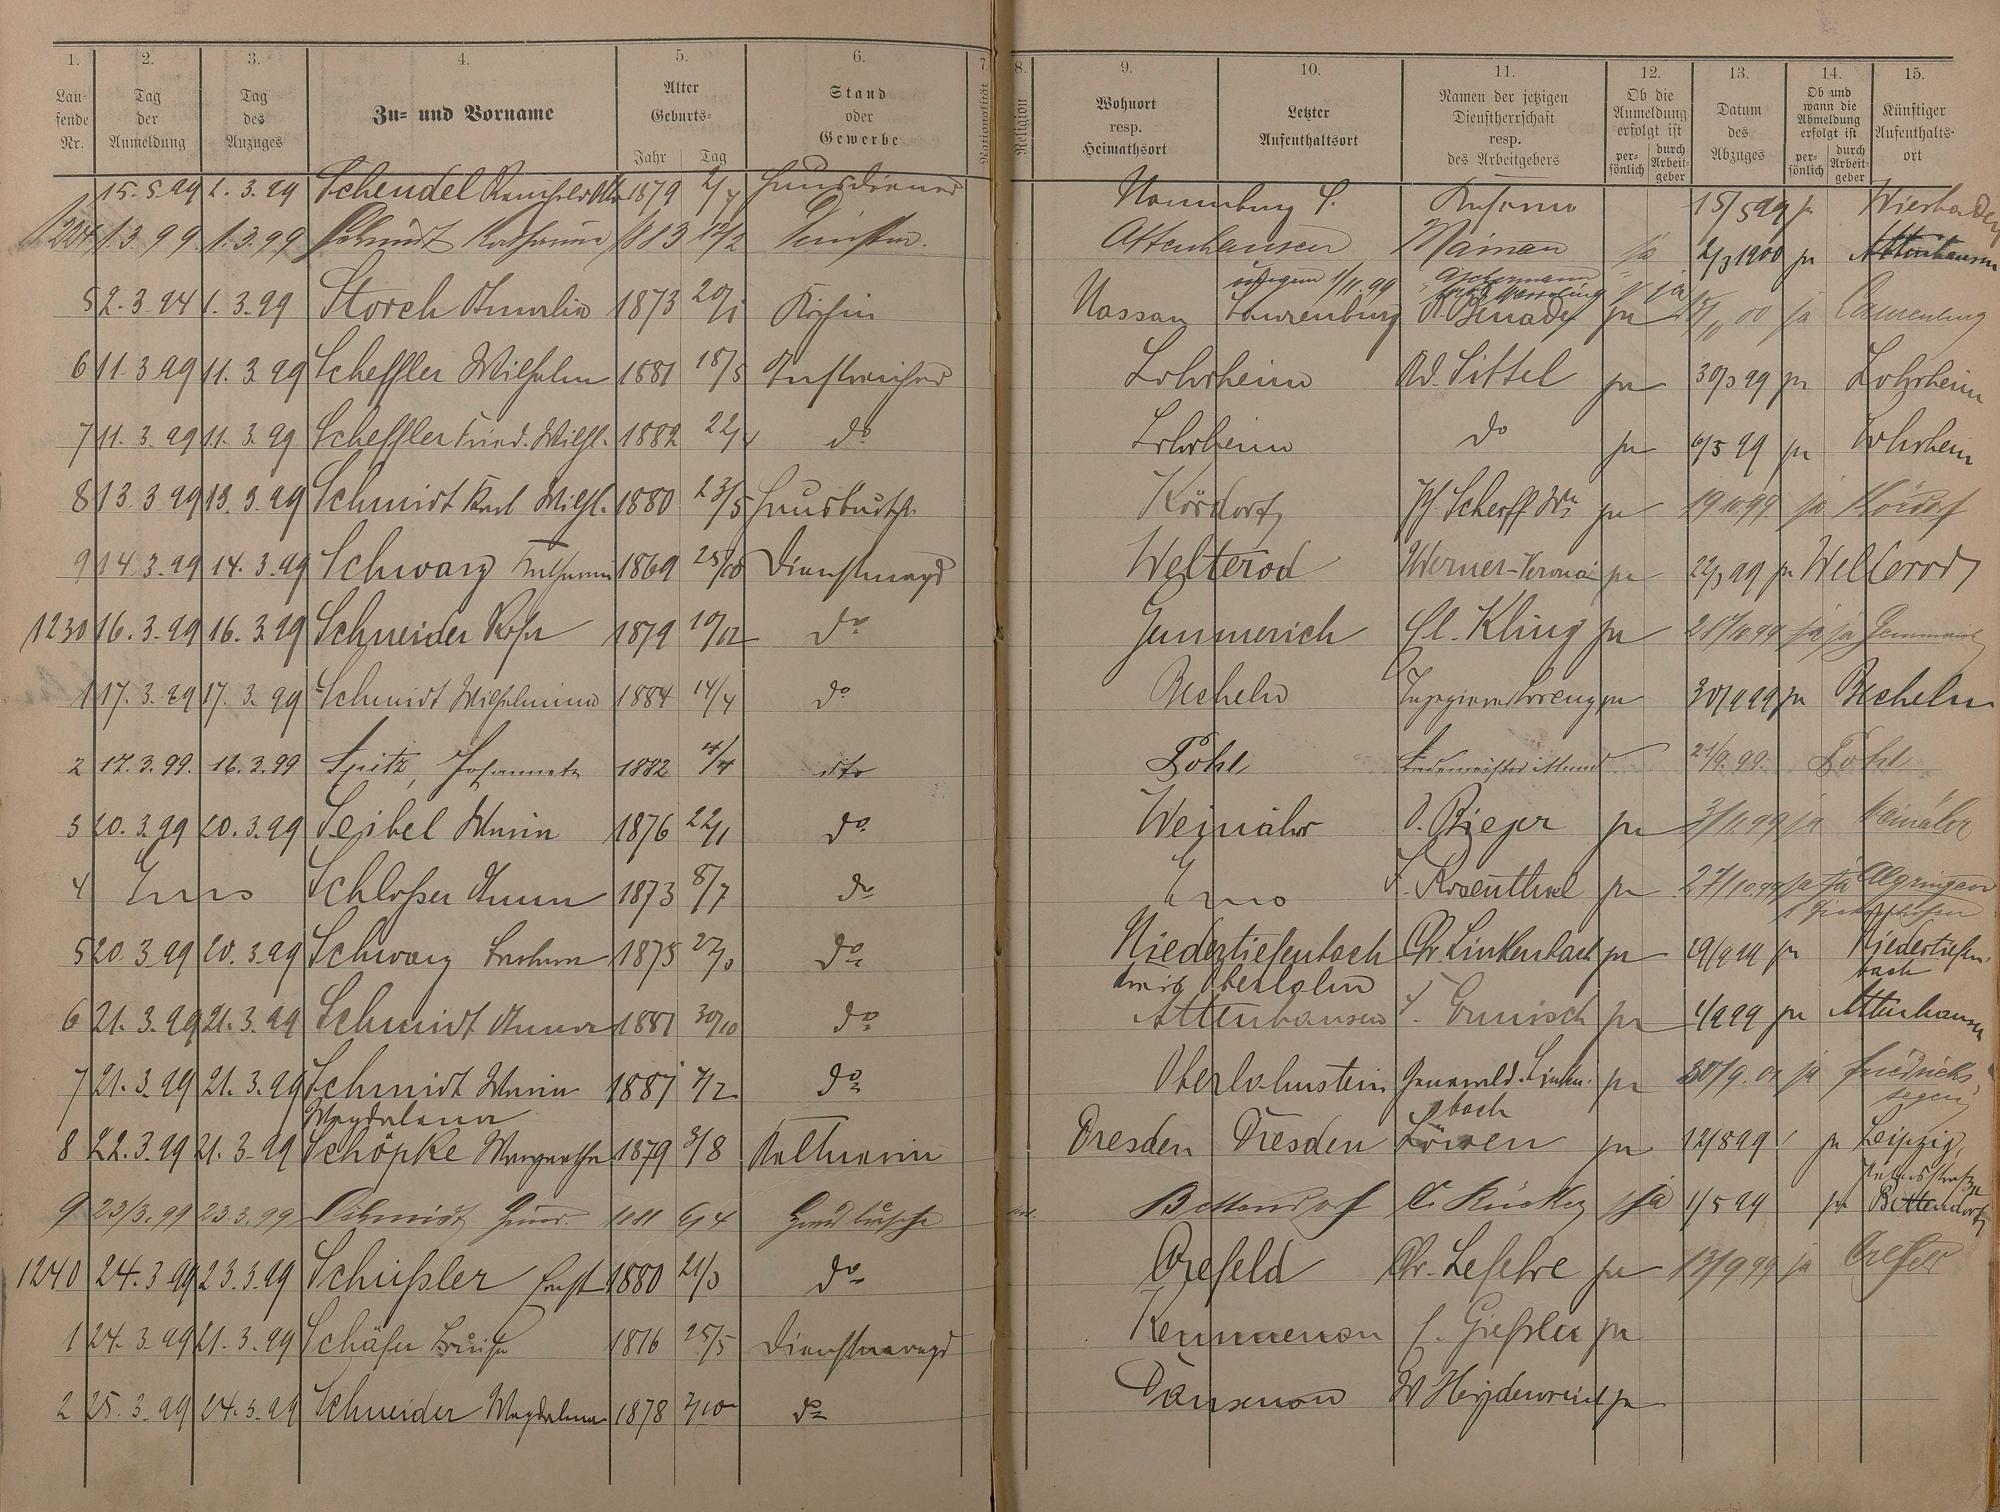 1. 2. 3. 4. 5. 6. 7. 8. 9. 10. 11. 12. 13. 14. 15.
Lau-
fende
Nr.
Tag
der
Anmeldung
Tag
des
Anzuges
Zu- und Vorname
Alter
Geburts-
Jahr Tag
Stand
oder
Gewerbe
Nationalität
Religion
Wohnort
resp.
Heimathsort
Letzter
Aufenthaltsort
Namen der jetzigen
Dienstherrschaft
resp.
des Arbeitgebers
Ob die
Anmeldung
erfolgt ist
per-
sönlich
durch
Arbeit-
geber
Datum
des
Abzuges
Ob und
wann die
Abmeldung
erfolgt ist
per-
sönlich
durch
Arbeit-
geber
Künftiger
Aufenthalts-
ort
15.5.99 Schendel 1879 2/4 Hausdiener 15/5 99 ja Wiesbaden
1224 1.3.99 1.3.99 Schmidt Katharina 1883 12/2 Attenhausen ja 2/3 1900 ja Attenhausen
1/11.99 Ackermann
5 2.3.94 1.3.99 Storch Amalia 1873 20/1 Köchin Nassau Laurenburg ja ja Laurenburg
6 11.3 99 11.3.99 Scheffler Wilhelm 1881 18/5 Anstreicher Lohrheim Ad. Sittel ja 30/3 99 ja Lohrheim
7 11.3.99 11.3.99 Scheffler Fried. Wilh. 1882 22/4 do Lohrheim do ja 6/5 99 ja Lohrheim
8 13.3 99 13.3.99 Schmidt Karl Wilh. 1880 23/5 Hausbursch. Kördorf Scherff ja 19.10.99 ja Kördorf
9 14.3.99 14.3.99 Schwarz Katharina 1869 25/10 Dienstmagd Welterod Werner ja 22/3 99 ja Welterod
1230 16.3.99 16.3.99 Schneider Rosa 1879 10/12 do Gemmerich Cl. Kling ja 28/10.99 ja ja Gemmerich
1 17.3.99 17.3.99 Schmidt Wilhelmina 1884 14/4 do Becheln Lorenz ja 30/9 99 ja Becheln
2 17.3.99. 16.3.99 Spitz, Johannette 1882 4/4 dto Pohl Bademeister 21/9.99. Pohl
3 20.3.99 20.3.99 Seibel Maria 1876 22/1 do Weinähr O. Rieger ja 3/11.99 ja Weinähr
4 Ems Schloßer Anna 1873 8/7 do Ems F. Rosenthal ja 27/10.99 ja ja Algringen
5 20.3 99 20.3.99 Schwarz 1875 do Niedertiefenbach Chr. Linkenbach ja ja Niedertiefen-
bach
Oberlahn
6 21.3.99 21.3.99 Schmidt Anna 1881 30/10 do Attenhausen ja 1/9 99 ja Attenhausen
7 21.3.99 21.3.99 Schmidt Maria 1881 7/2 do Oberlahnstein Grunwald. Linken- ja 30/9.00 ja Friedrichs-
Magdalena bach segen
8 22.3.99 21.3.99 Schöpke Margarethe 1879 3/8 Kellnerin Dresden Dresden Löwen ja 12/8 99 ja Leipzig,
9 23/3.99 23.3.99 Schmidt 1881 6/4 Hausbursche Bettendorf C. Rücker ja 1/5 99 ja Bettendorf
1240 24.3 99 23.3.99 Schüßler Ernst 1880 21/3 do Crefeld Chr. Lefebre ja 13/9 99 ja Crefeld
1 24.3.99 21.3.99 Schäfer Louise 1876 25/5 Dienstmagd Kemmenau C. Gießler ja
2 25.3.99 24.3.99 Schneider Magdalena 1878 7/10 do Dausenau W Heydenreich ja